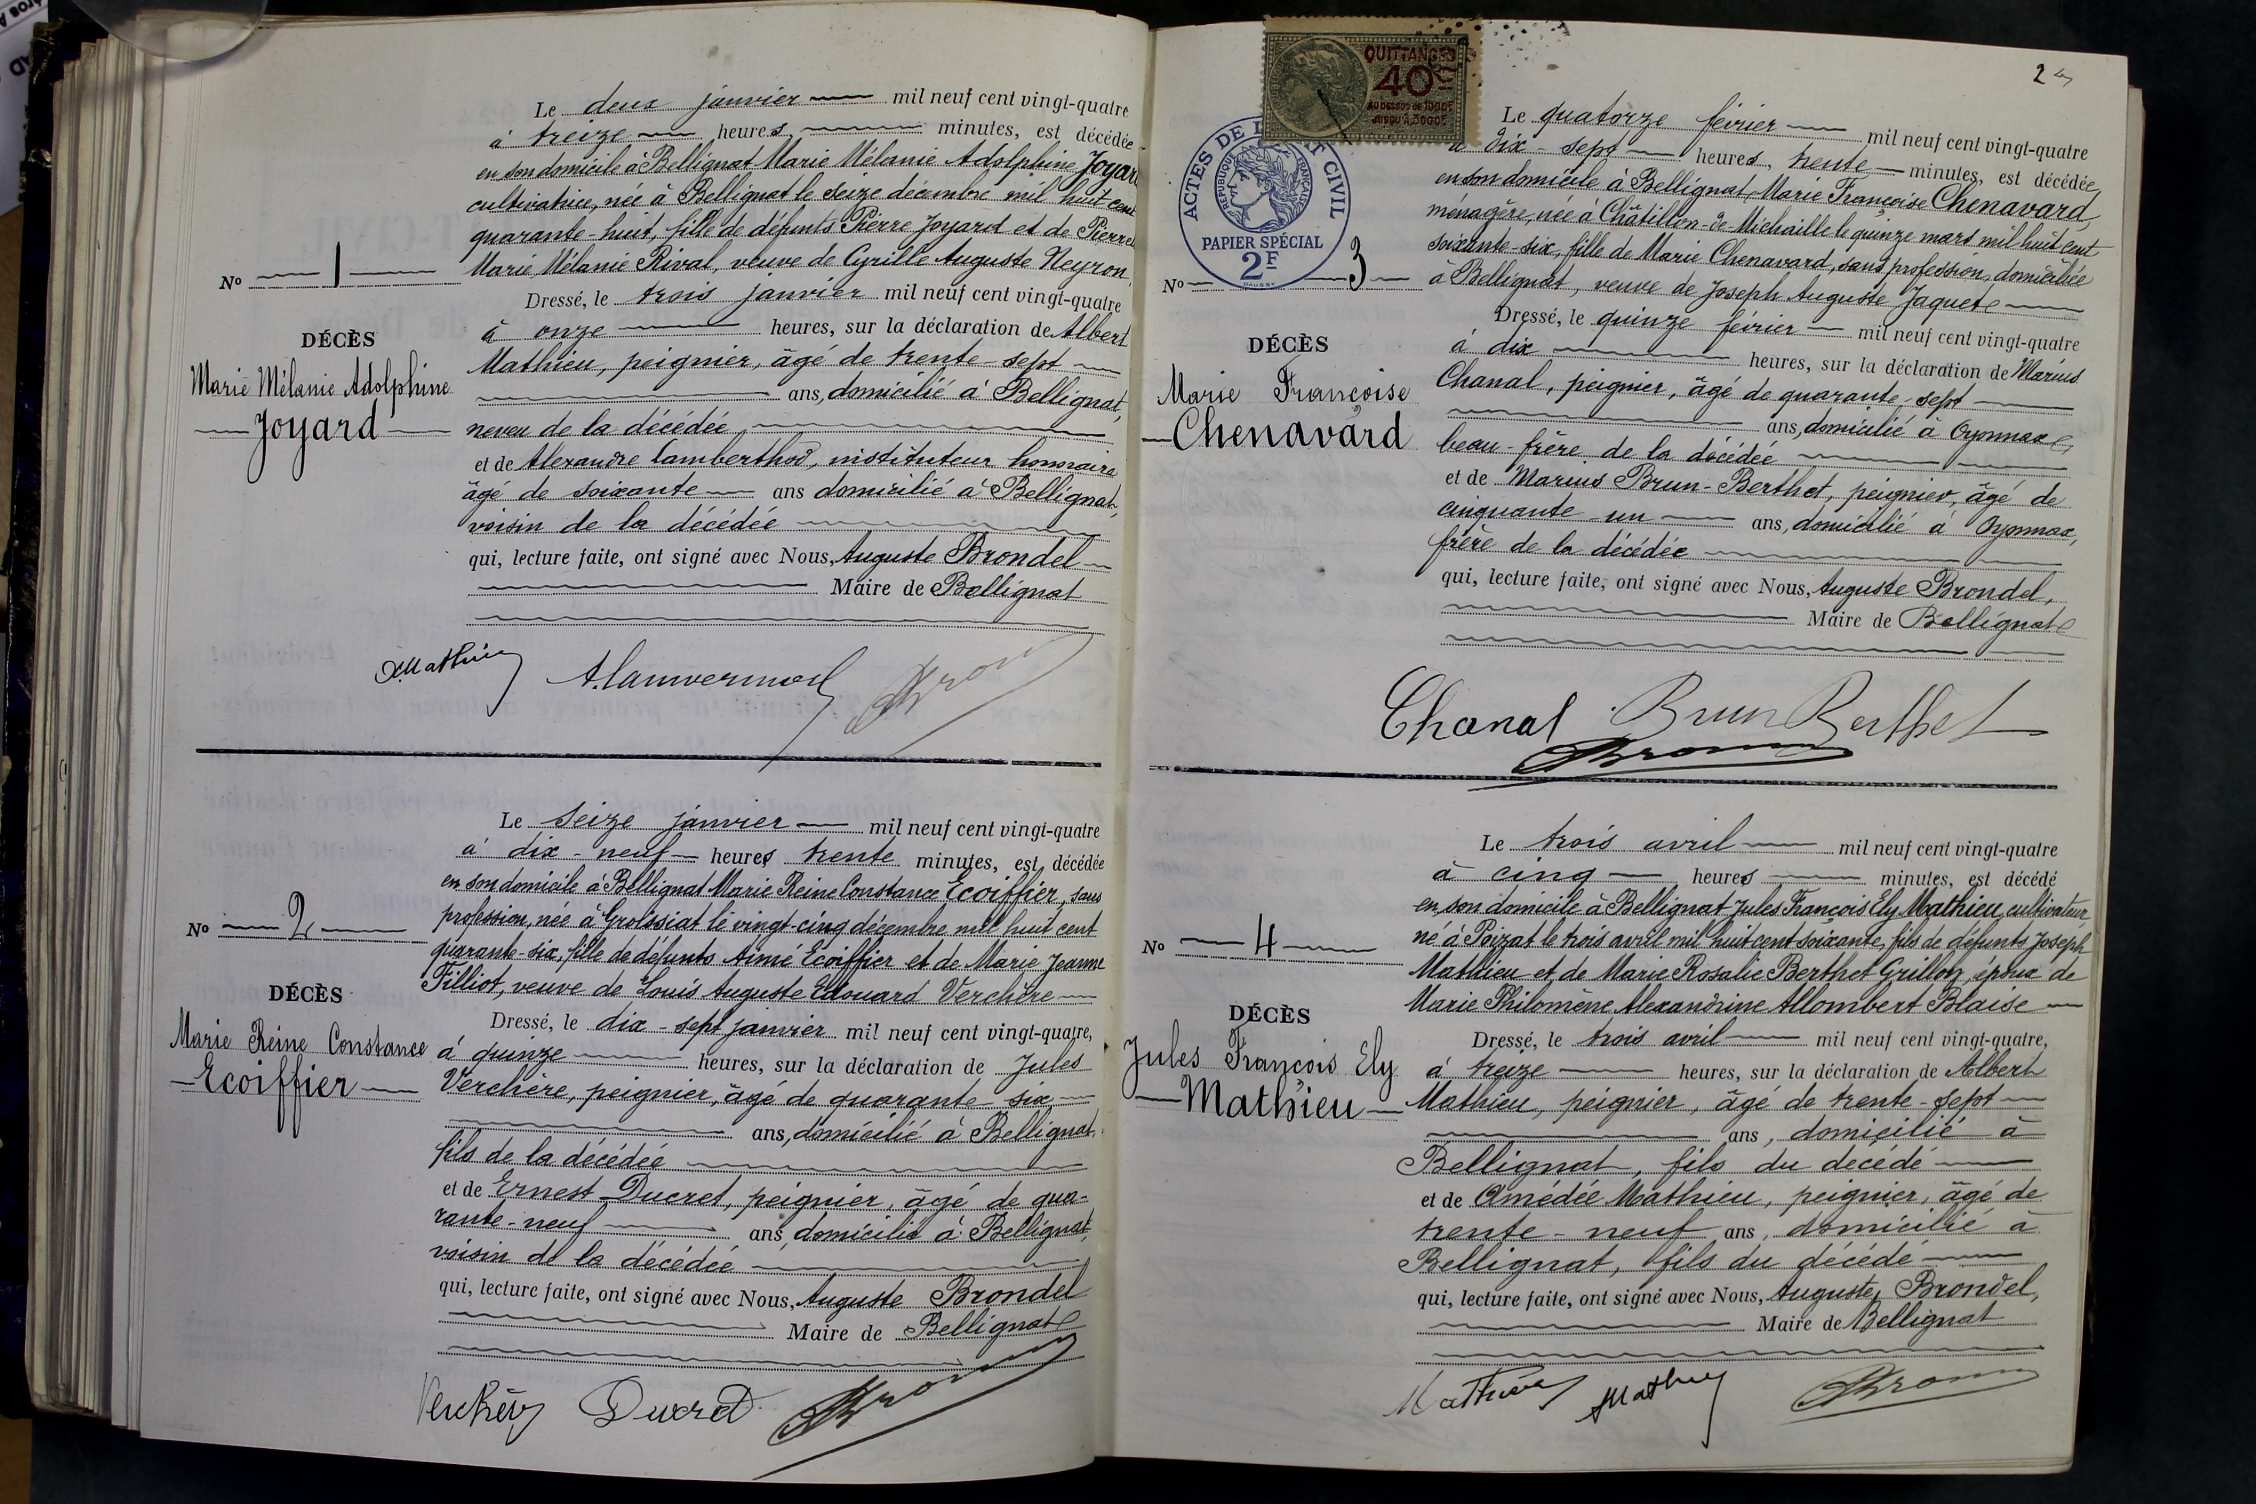 Le deux janvier mil neuf cent vingt-quatre
à treize heures, minutes, est décédée
en son domicile à Bellignat Marie Mélanie Adolphine Joyard
cultivatrice, née à Bellignat le seize décembre mil huit cent
quarante-huit, fille de défunts Pierre Joyard et de Pierrette
Marie Mélanie Rival, veuve de Cyrille Auguste Neyron,
No 1
Dressé, le trois janvier mil neuf cent vingt-quatre
à onze heures, sur la déclaration de Albert
DÉCÈS
Marie Mélanie Adolphine
Joyard
Mathieu, peignier, âgé de trente-sept
ans, domicilié à Bellignat,
neveu de la décédée
et de Alexandre
instituteur honoraire
âgé de soixante ans domicilié à Bellignat,
voisin de la décédée
qui, lecture faite, ont signé avec Nous, Auguste Brondel
Maire de Bellignat
Mathieu
Le seize janvier mil neuf cent vingt-quatre
à dix-neuf heures trente minutes, est décédée
en son domicile à Bellignat Marie Reine Constance Ecoiffier, sans
profession, née à Groissiat le vingt-cinq décembre mil huit cent
quarante-six, fille de défunts Aimé Ecoiffier et de Marie Jeanne
Filliot, veuve de Louis Auguste Edouard Verchère
No 2
DÉCÈS
Marie Reine Constance
Ecoiffier
Dressé, le dix-sept janvier mil neuf cent vingt-quatre,
à quinze heures, sur la déclaration de Jules
Verchère, peignier, âgé de quarante-six
ans, domicilié à Bellignat,
fils de la décédée
et de Ernest Ducret, peignier, âgé de qua-
rante-neuf ans, domicilié à Bellignat,
voisin de la décédée
qui, lecture faite, ont signé avec Nous, Auguste Brondel
Maire de Bellignat
Verchère Ducret
2
QUITTANCES
40c
AU DESSUS DE 1000F
JUSQU'À 3000F
ACTES DE L'ÉTAT CIVIL
RÉPUBLIQUE FRANÇAISE
PAPIER SPÉCIAL
2F
Le quatorze février mil neuf cent vingt-quatre
à dix-sept heures, trente minutes, est décédée
en son domicile à Bellignat, Marie Françoise Chenavard,
ménagère, née à Châtillon-de-Michaille le quinze mars mil huit cent
soixante-six, fille de Marie Chenavard, sans profession, domiciliée
à Bellignat, veuve de Joseph Auguste Jaquet
No 3
DÉCÈS
Marie Françoise
Chenavard
Dressé, le quinze février mil neuf cent vingt-quatre
à dix heures, sur la déclaration de Marius
Chanal, peignier, âgé de quarante-sept
ans, domicilié à Oyonnax,
beau-frère de la décédée
et de Marius Brun-Berthet, peignier, âgé de
cinquante-un ans, domicilié à Oyonnax,
frère de la décédée
qui, lecture faite, ont signé avec Nous, Auguste Brondel,
Maire de Bellignat
Chanal Brun Berthet
Le trois avril mil neuf cent vingt-quatre
à cinq heures minutes, est décédé
en son domicile à Bellignat Jules François Ely Mathieu, cultivateur
né à Poizat le trois avril mil huit cent soixante, fils de défunts Joseph
Mathieu et de Marie Rosalie Berthet Grillon, époux de
Marie Philomène Alexandrine Allombert Blaise
No 4
DÉCÈS
Jules François Ely
Mathieu
Dressé, le trois avril mil neuf cent vingt-quatre,
à treize heures, sur la déclaration de Albert
Mathieu, peignier, âgé de trente-sept
ans, domicilié à
Bellignat, fils du décédé
et de Amédée Mathieu, peignier, âgé de
trente-neuf ans, domicilié à
Bellignat, fils du décédé
qui, lecture faite, ont signé avec Nous, Auguste Brondel,
Maire de Bellignat
Mathieu Mathieu